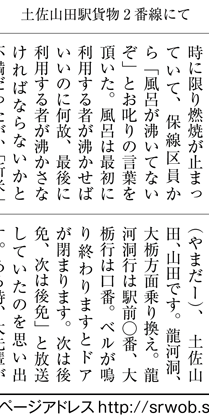 土佐山田駅貨物２番線にて
時に限り燃焼が止まっ
ていて、保線区員か
ら「風呂が沸いてない
ぞ」とお叱りの言葉を
頂いた。風呂は最初に
利用する者が沸かせば
いいのに何故、最後に
利用する者が沸かさな
ければならないかと
（やまだー）、土佐山
田、山田です。龍河洞、
大栃方面乗り換え。龍
河洞行は駅前〇番、大
栃行は口番。ベルが鳴
り終わりますとドア
が閉まります。次は後
免、次は後免」と放送
していたのを思い出
ページアドレス http://srwob.s